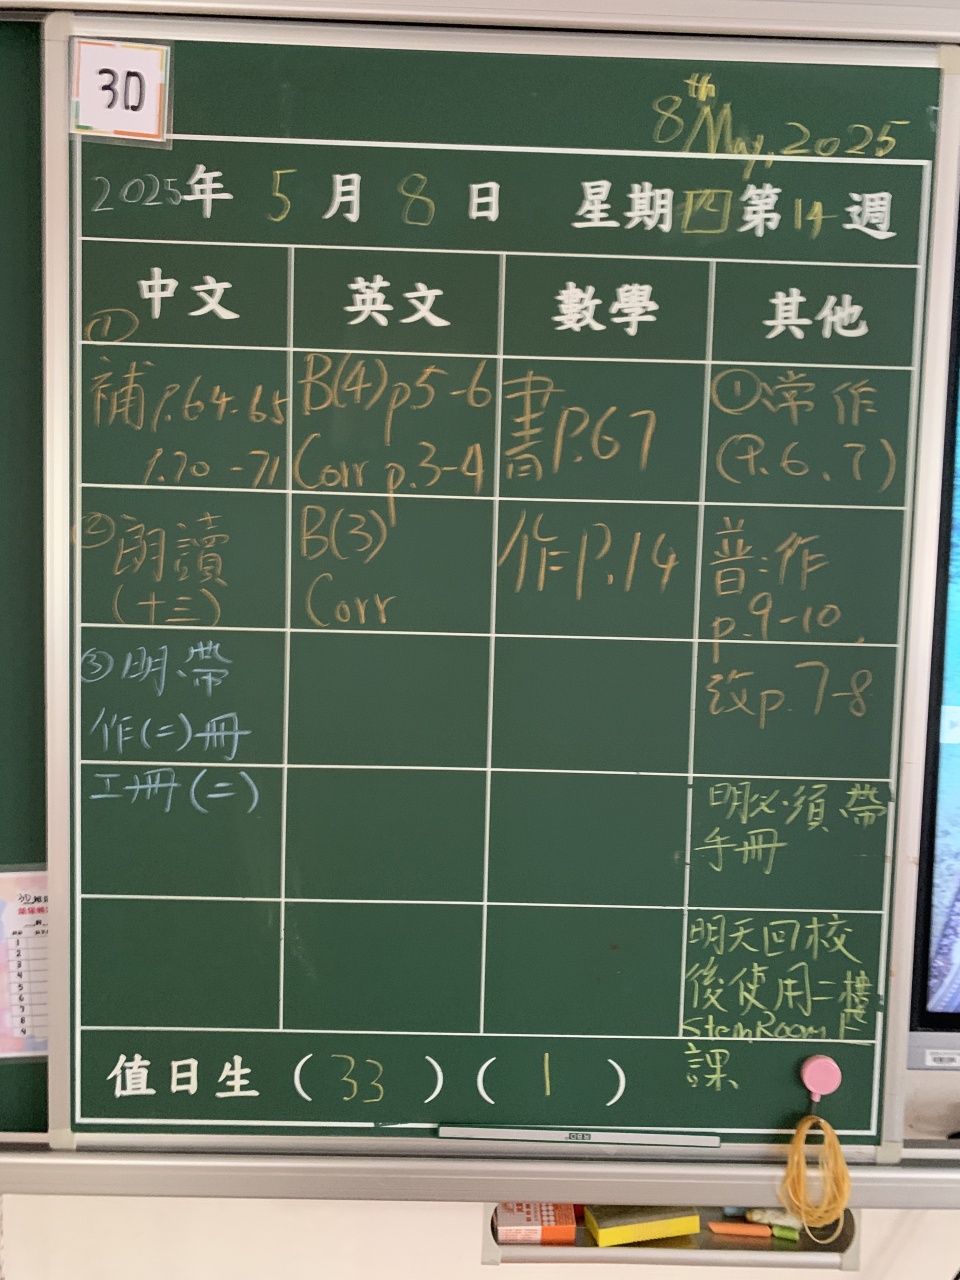 3D
8th May, 2025
2025年 5月 8日 星期四 第14週
中文 英文 數學 其他
① 補 P.64-65
P.70-71
② 朗讀
(十三)
③ 明、帶
作(二)冊
工冊(二)
B(4) p5-6
Corr p.3-4
B(3)
Corr
書P.67
作P.14
①常作
(P.6、7)
普:作
p.9-10
改p.7-8
明必須帶
手冊
明天回校
後使用二樓
Stem Room上
課
值日生 (33) (1)